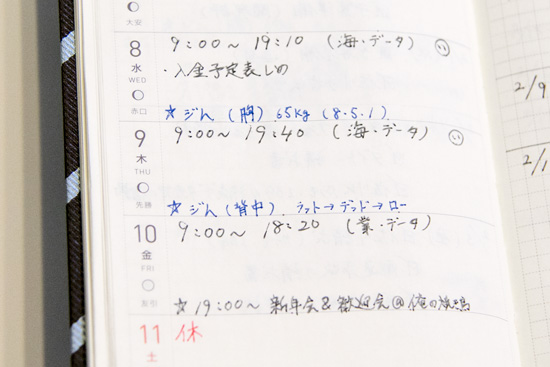 大安
8 9:00〜 19:10 (海・データ)
水 ・入金予定表〆め
WED
赤口 ☆ジム (胸) 65kg (8.5.1)
9 9:00〜 19:40 (海・データ)
木
THU
先勝 ☆ジム (背中). ラット→デッド→ロー
10 9:00〜 18:20 (業・データ)
金
FRI
友引 ☆19:00〜 新年会&歓迎会@俺の焼鳥
11 休
土
2/9
2/1